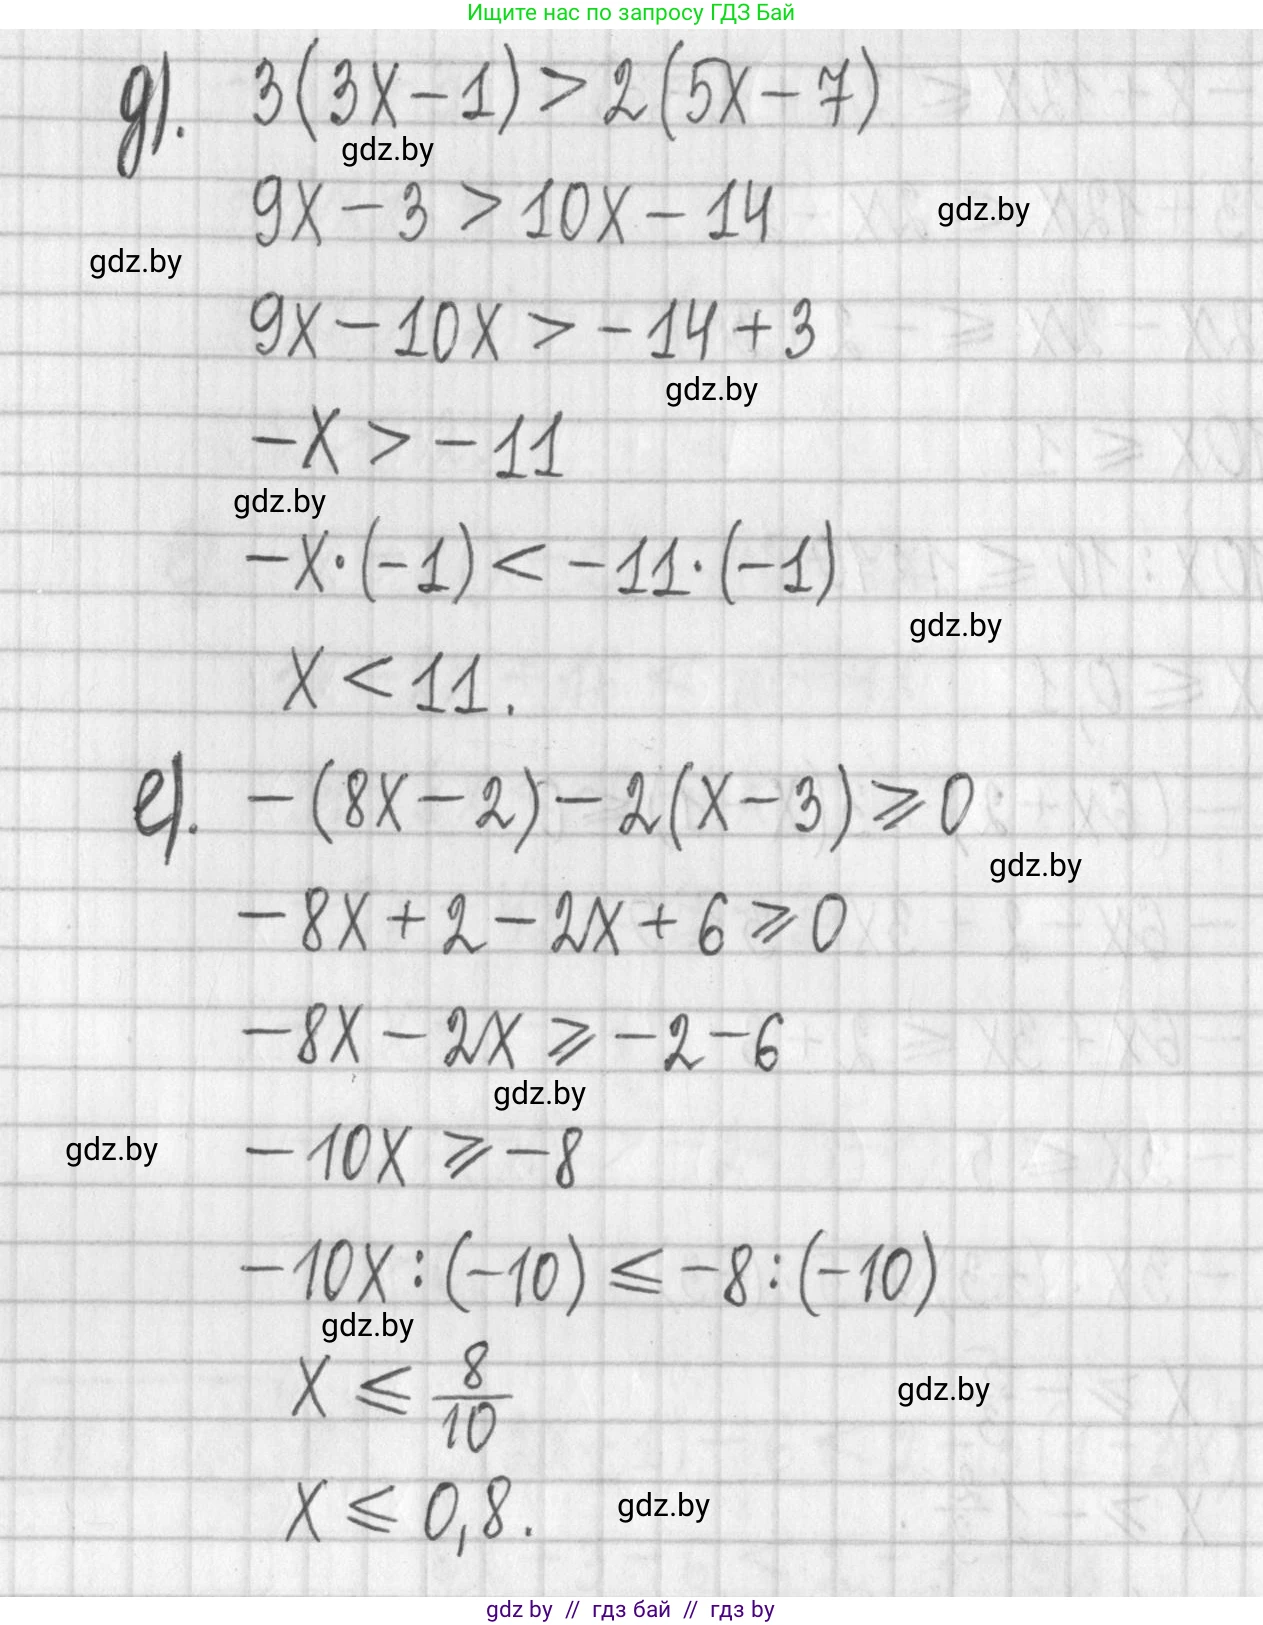 Ищите нас по запросу ГДЗ Бай
д). 3(3x-1)>2(5x-7)
gdz.by
9x-3>10x-14
gdz.by
gdz.by
9x-10x>-14+3
gdz.by
-x>-11
gdz.by
-x·(-1)<-11·(-1)
gdz.by
x<11.
е). -(8x-2)-2(x-3)⩾0
gdz.by
-8x+2-2x+6⩾0
-8x-2x⩾-2-6
gdz.by
gdz.by
-10x⩾-8
-10x:(-10)⩽-8:(-10)
gdz.by
x⩽8/10
gdz.by
x⩽0,8.
gdz.by
gdz by // гдз бай // гдз by